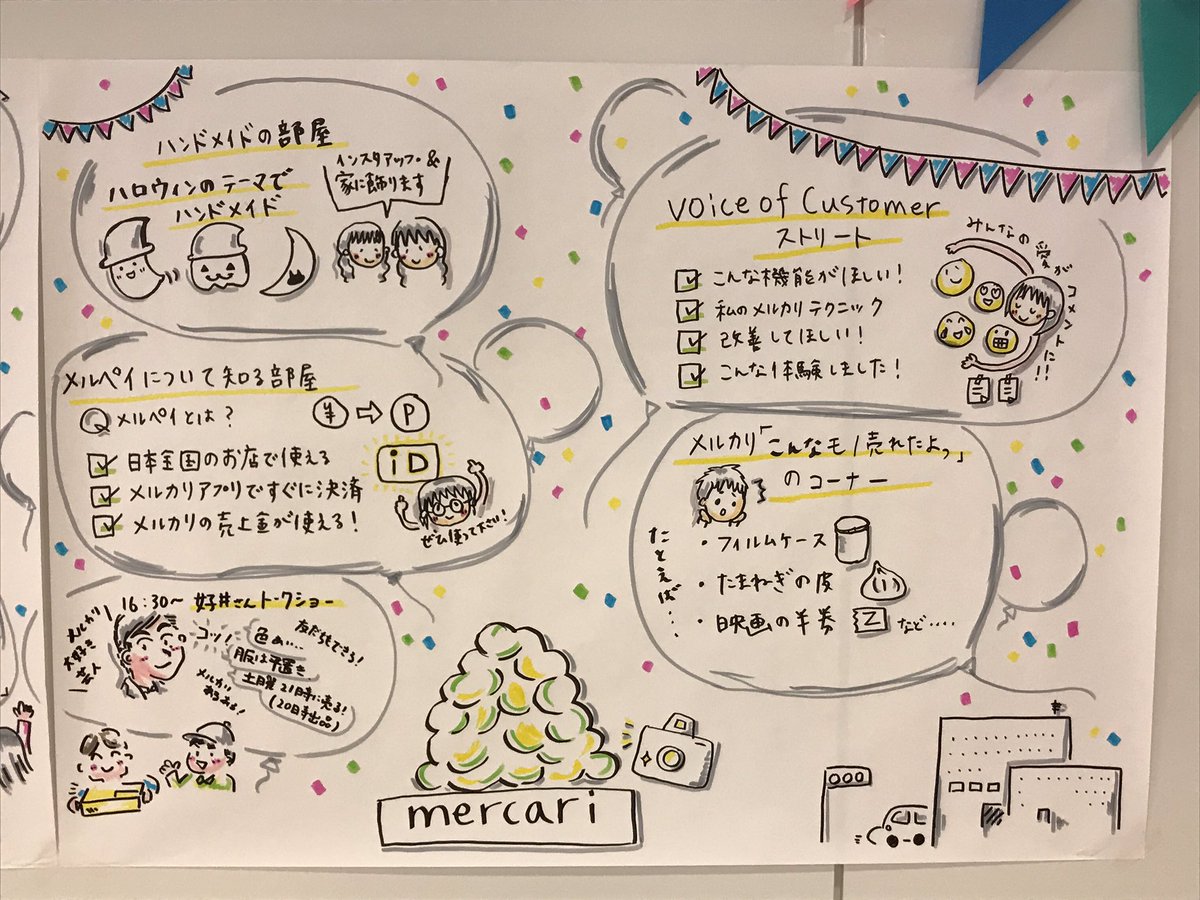 ハンドメイドの部屋
ハロウィンのテーマで
ハンドメイド
インスタアップ &
家に飾ります
メルペイについて知る部屋
Q メルペイとは?
¥ ⇨ P
日本全国のお店で使える
メルカリアプリですぐに決済
メルカリの売上金が使える!
iD
ぜひ使って下さい!
16:30〜 好井さんトークショー
メルカリ
大好き
芸人
コツ!
友だちもできる!
色め....
服は平置き
土曜21時に売る!
(20時出品)
メルカリ
あるある!
mercari
Voice of Customer
ストリート
こんな機能がほしい!
私のメルカリテクニック
改善してほしい!
こんな体験しました!
みんなの愛が
コメントに!!
メルカリ「こんなモノ売れたよっ」
のコーナー
たとえば・・・
・フィルムケース
・たまねぎの皮
・映画の半券
など....